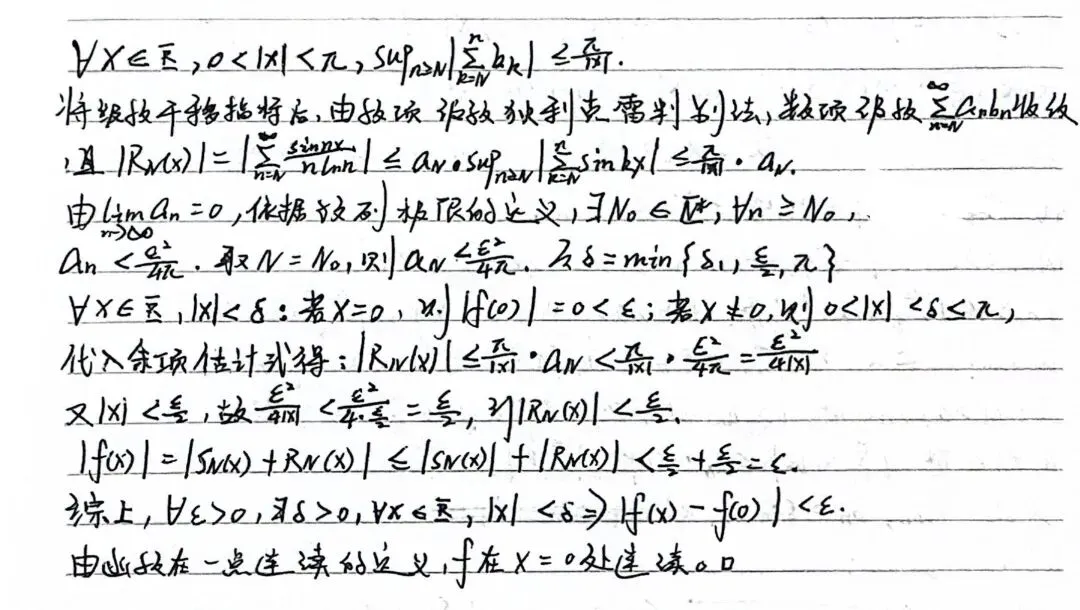 ∀x∈R, 0<|x|<π, sup_{n≥N}|∑_{k=N}^{n} b_k| ≤ π/|x|.
将级数平移指标后,由数项级数狄利克雷判别法,数项级数∑_{n=N}^{∞} a_n b_n 收敛
,且 |R_N(x)| = |∑_{n=N}^{∞} sin nx/(n ln n)| ≤ a_N·sup_{n≥N}|∑_{k=N}^{n} sin kx| ≤ π/|x| · a_N.
由 lim_{n→∞} a_n = 0, 依据数列极限的定义, ∃N₀∈N*, ∀n≥N₀,
a_n < ε²/4π. 取N=N₀, 则 a_N < ε²/4π. 令δ=min{δ₁, ε/2, π}
∀x∈R, |x|<δ: 若x=0, 则|f(0)|=0<ε; 若x≠0, 则0<|x|<δ≤π,
代入余项估计式得: |R_N(x)| ≤ π/|x| · a_N < π/|x| · ε²/4π = ε²/4|x|
又|x|<ε/2, 故 ε²/4|x| < ε²/(4·ε/2) = ε/2, 即|R_N(x)|<ε/2.
|f(x)| = |S_N(x)+R_N(x)| ≤ |S_N(x)|+|R_N(x)| < ε/2+ε/2=ε.
综上, ∀ε>0, ∃δ>0, ∀x∈R, |x|<δ ⇒ |f(x)-f(0)|<ε.
由函数在一点连续的定义, f在x=0处连续。□